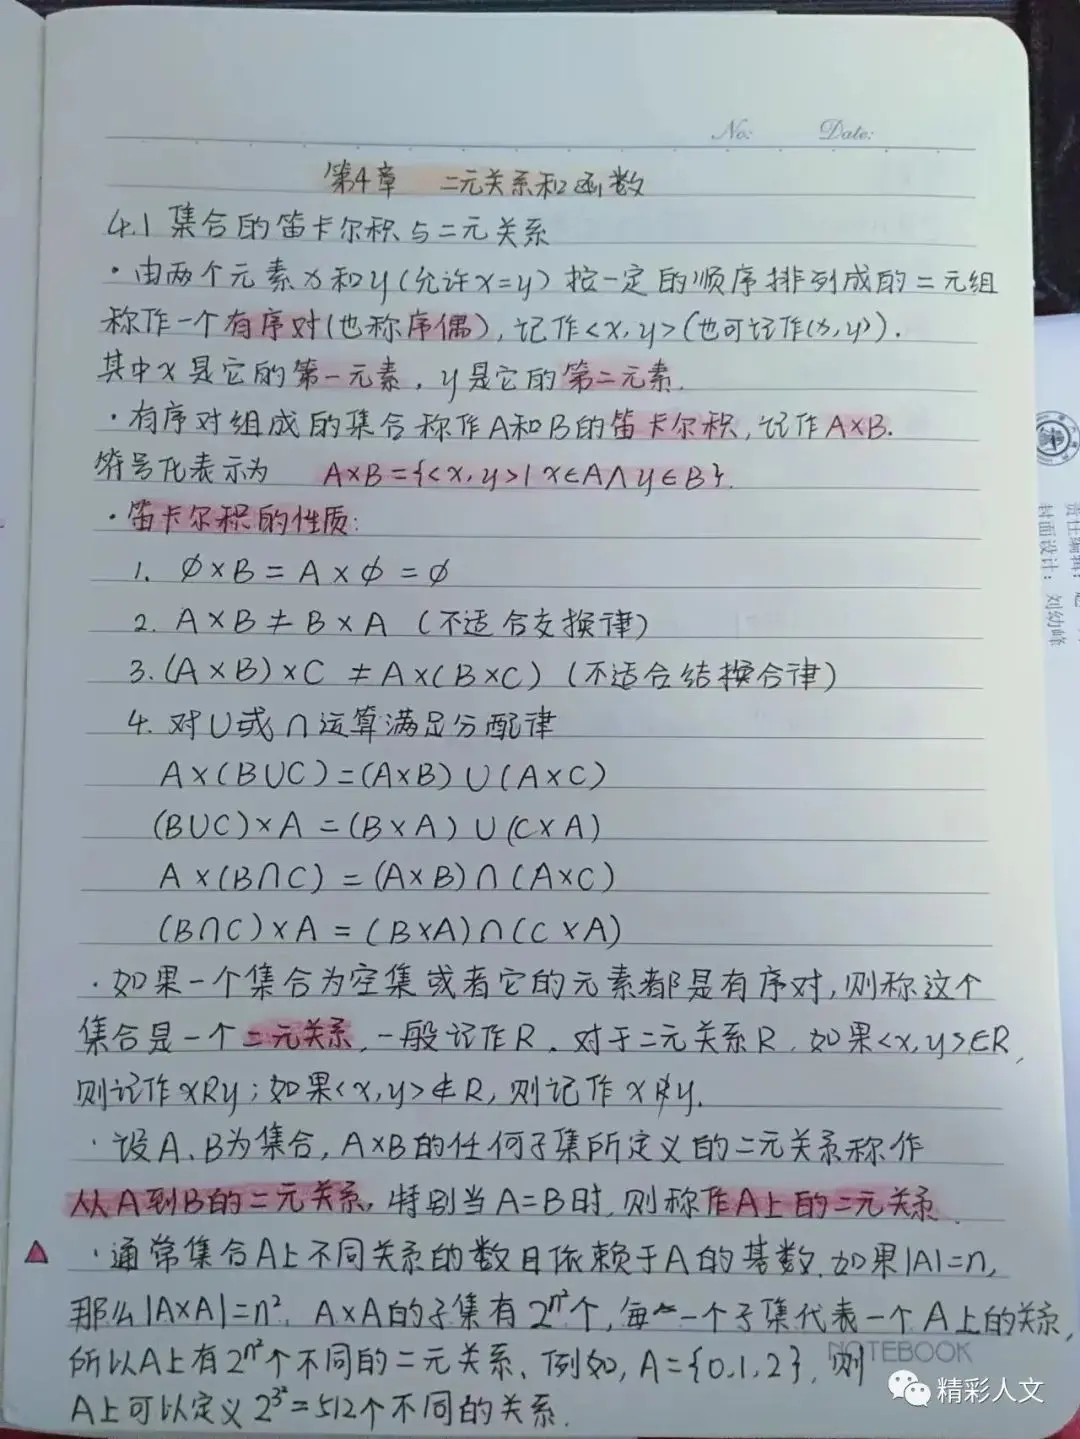 No: Date:
第4章 二元关系和函数
4.1 集合的笛卡尔积与二元关系
·由两个元素x和y(允许x=y)按一定的顺序排列成的二元组
称作一个有序对(也称序偶),记作<x,y>(也可记作(x,y)).
其中x是它的第一元素,y是它的第二元素.
·有序对组成的集合称作A和B的笛卡尔积,记作A×B.
符号化表示为 A×B={<x,y>|x∈A∧y∈B}.
·笛卡尔积的性质:
1. ∅×B=A×∅=∅
2. A×B≠B×A (不适合交换律)
3.(A×B)×C ≠A×(B×C) (不适合结换合律)
4. 对∪或∩运算满足分配律
A×(B∪C)=(A×B)∪(A×C)
(B∪C)×A=(B×A)∪(C×A)
A×(B∩C)=(A×B)∩(A×C)
(B∩C)×A=(B×A)∩(C×A)
·如果一个集合为空集或者它的元素都是有序对,则称这个
集合是一个二元关系,一般记作R.对于二元关系R,如果<x,y>∈R,
则记作xRy;如果<x,y>∉R,则记作xR̸y.
·设A、B为集合,A×B的任何子集所定义的二元关系称作
从A到B的二元关系,特别当A=B时,则称作A上的二元关系.
·通常集合A上不同关系的数目依赖于A的基数.如果|A|=n,
那么|A×A|=n²,A×A的子集有2^n²个,每一个子集代表一个A上的关系,
所以A上有2^n²个不同的二元关系、例如,A={0,1,2},则
A上可以定义2^3²=512个不同的关系.
NOTEBOOK
精彩人文
责任编辑:
封面设计:刘幼峰